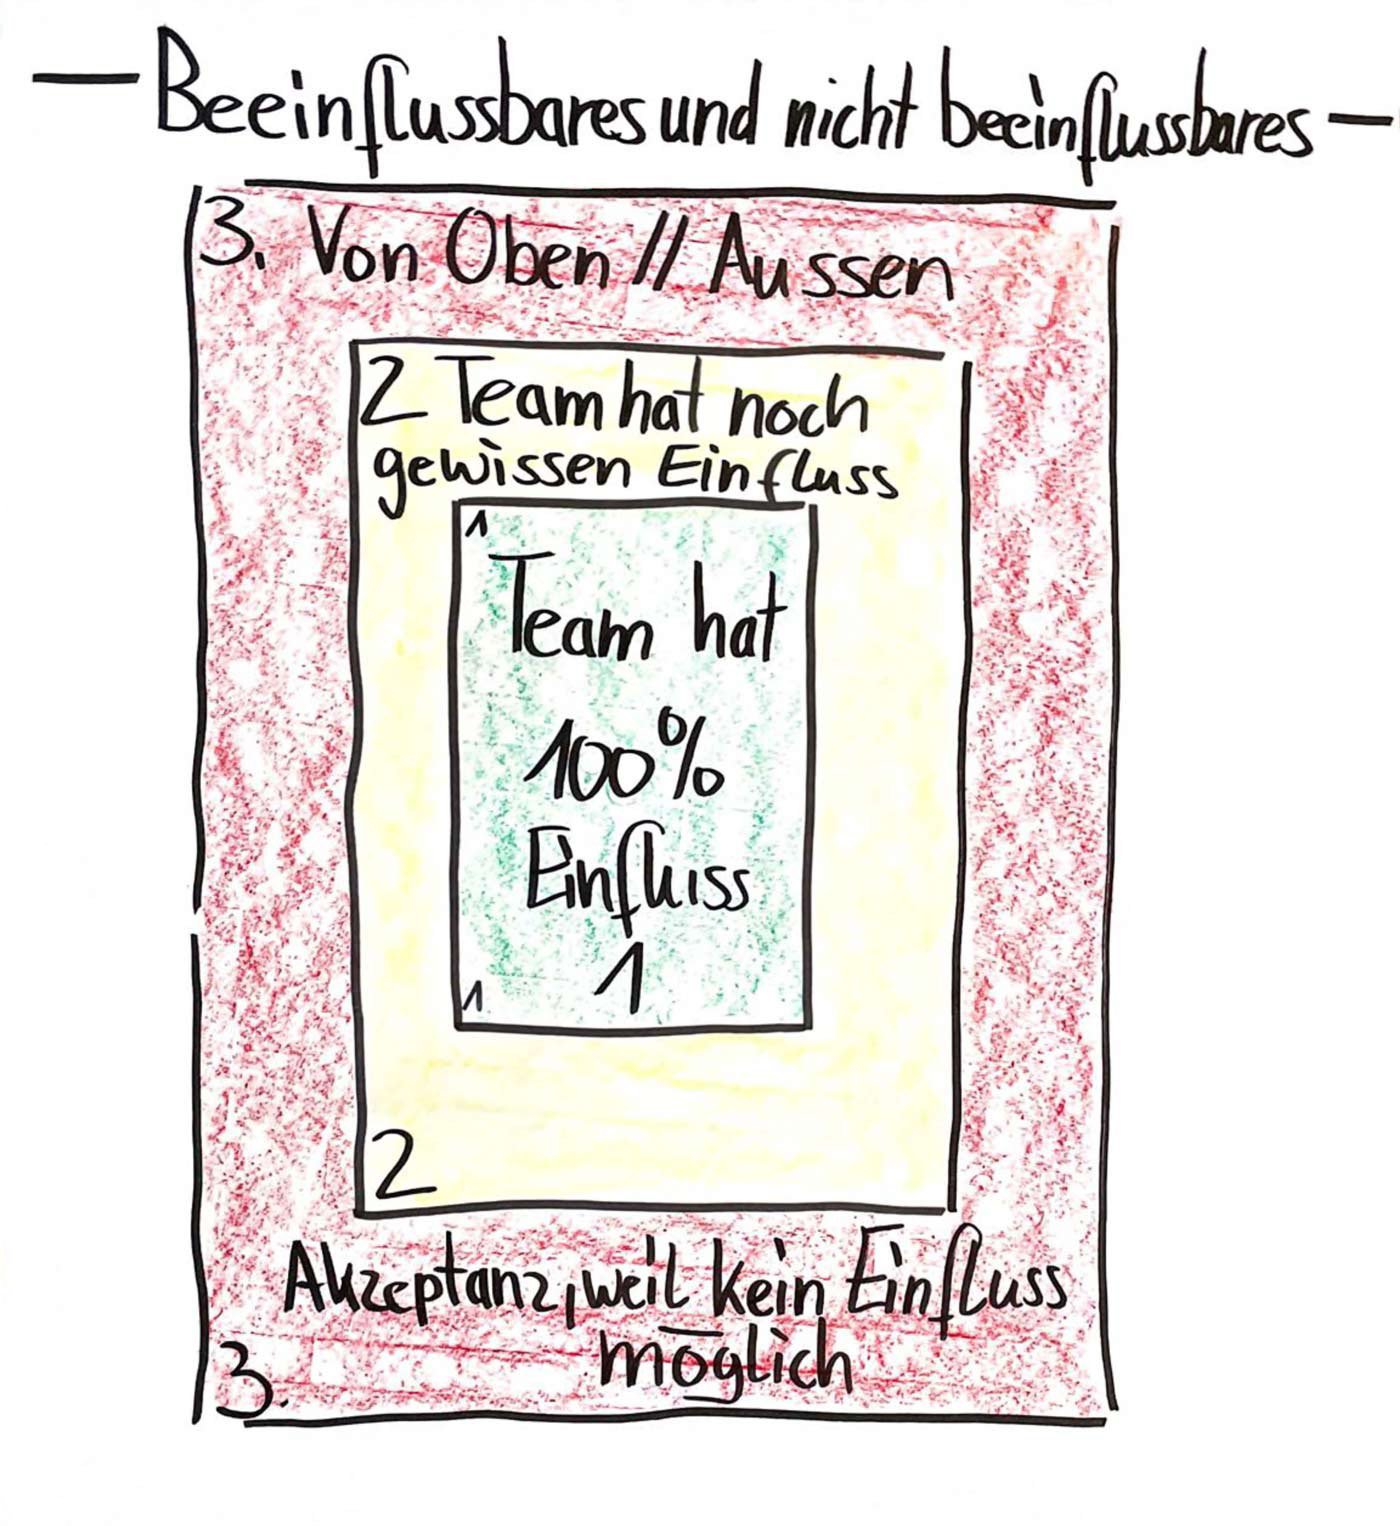 — Beeinflussbares und nicht beeinflussbares —
3. Von Oben // Aussen
2 Team hat noch
gewissen Einfluss
1
Team hat
100%
Einfluss
1
1
2
Akzeptanz, weil kein Einfluss
möglich
3.